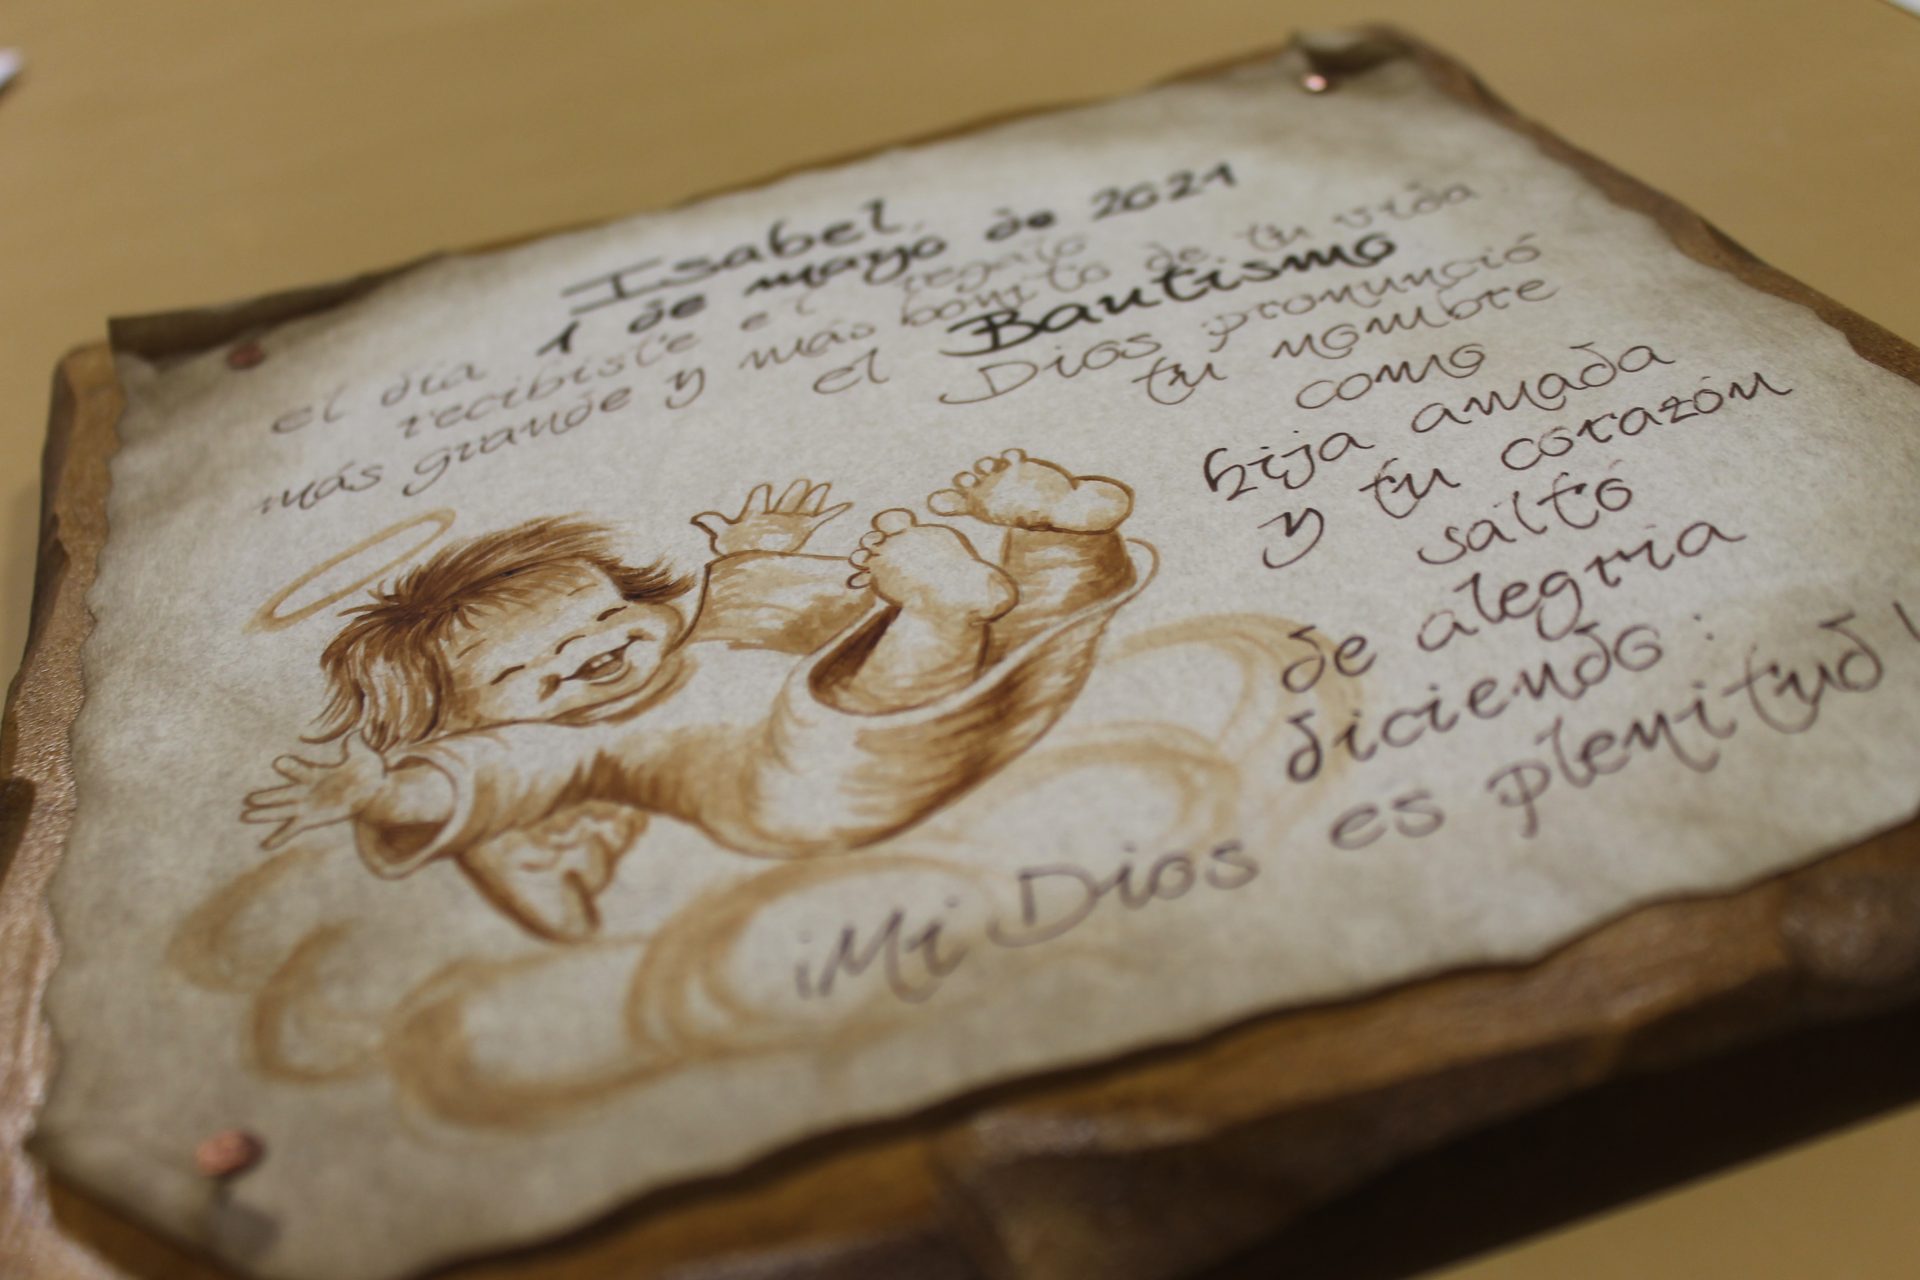 Isabel,
el día 1 de mayo de 2021
recibiste el regalo
más grande y más bonito de tu vida
el Bautismo
Dios pronunció
tu nombre
como
hija amada
y tu corazón
saltó
de alegria
diciendo:
¡Mi Dios es plenitud!